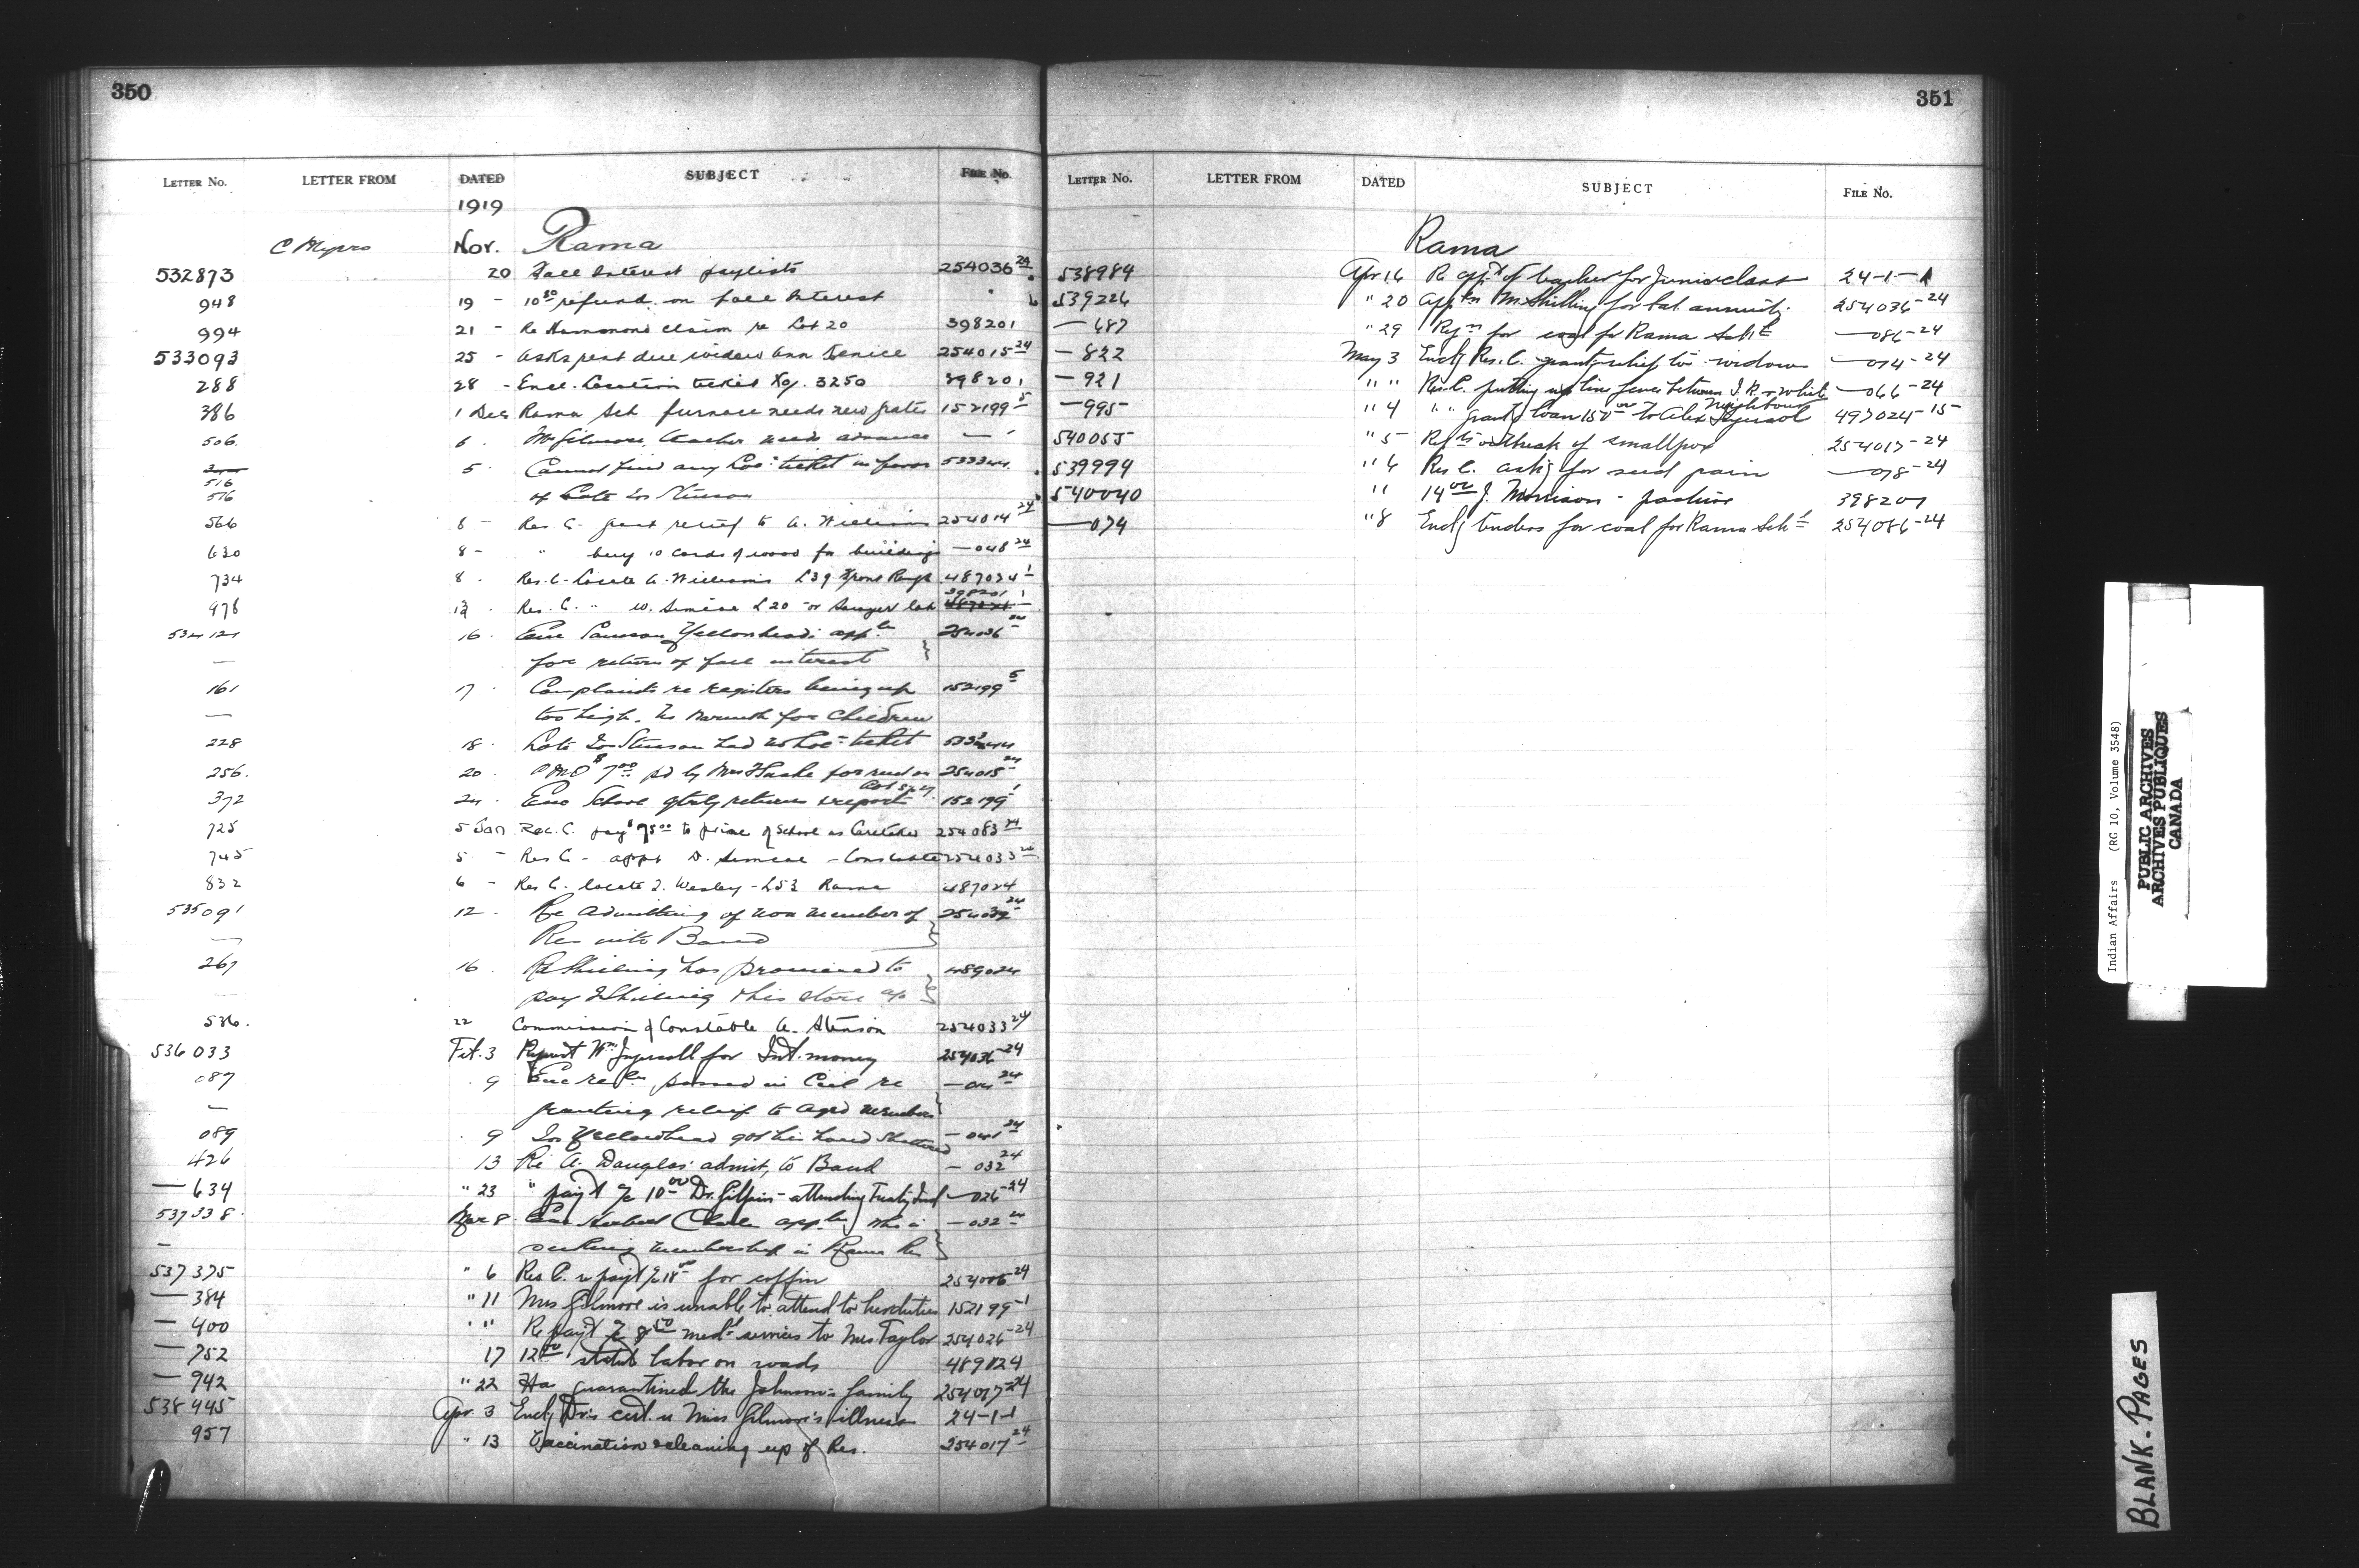 350
LETTER NO. LETTER FROM DATED SUBJECT FILE NO.
1919
C Myers Nov. Rama
532873 20 Fall Interest paylists 254036 24
948 19 - 10 50 refund on fall Interest "
994 21 - Re Hammond claim re Lot 20 398201
533093 25 - Asks rent due widow Ann 254015 24
288 28 - Encl. Location ticket No. 3250 398201
386 1 Dec Rama Sch furnace needs new grates 152199 5
506 6 . Mr Gilmore, teacher needs advance —
5 . Cannot find any Loc: ticket in favor
516
516 of Late Jos Stinson
566 8 - Res. C. grant relief to A. Williams 254014 24
630 8 - " buy 10 cords of wood for building — 048 24
734 8 . Res. C. Locate A. Williams L39 Front Range 487024 1
978 12 . Res. C. " W. Simcoe L20 or Sawyer lot 398201 1
534121 16 . Enc Yellowhead: appln 254036 24
— for return of fall interest
161 17 . Complaints re registers being up 152199 5
— too high. No warmth for children
228 18 . Late Jos Stinson had no Loc: ticket
256. 20 . $7 00 pd by Mrs for rent on 254015 24
Lot
372 24 . Enc School qtrly returns & report 152199 1
725 5 Jan Res. C. pay $75 00 to of School as Caretaker 254083 24
745 5 - Res C - appt D. Simcoe - Constable 254033 24
832 6 - Res C. locate J. Wesley - L53 Rama 487024
535091 12 . Re admitting of non member of 254032 24
— Res into Band
267 16 . R Shilling has promised to 489024
pay J Shilling his store a/c
536. 22 Commission of Constable A. Stinson 254033 24
536033 Feb. 3 Request Wm Ingersoll for Int. money 254036-24
087 . 9 Enc resln passed in Ccil re — 014 24
— granting relief to aged members
089 . 9 Jos Yellowhead got his hand shattered — 041 24
426 13 Re A. Douglas' admit, to Band — 032 24
— 634 " 23 " pay't a/c 10 00 Dr. Gilpin - attending — 026-24
537338. Mar 8 . Enc Herbert appln who is — 032 24
— seeking membership in Rama Res
537375 " 6 Res C. re pay't a/c 18 00 for coffin 254006-24
— 384 " 11 Mrs Gilmore is unable to attend to her duties 152199-1
— 400 " " Re pay't a/c 8 50 med'l services to Mrs Taylor 254026-24
— 752 17 12 00 statute labor on roads 489024
— 942 " 22 Has quarantined the Johnson's family 254017-24
538445 Apr. 3 Encl'g Dr's cert. re Miss Gilmore's illness 24-1-1
957 " 13 Vaccination & cleaning up of Res. 254017 24
351
LETTER NO. LETTER FROM DATED SUBJECT FILE NO.
Rama
538984 Apr. 16 Re app't of teacher for Junior class 24-1-1
539226 " 20 Appln M. Shilling for bal. annuity 254036-24
— 687 " 29 Rqn for coal for Rama Schl — 086-24
— 822 May 3 Encl'g Res. C. grant relief to widow — 014-24
— 921 " " Res. C. putting up line fence between I.R. & white — 066-24
Neighbour
— 995 " 4 " " grant'g loan 150 00 to Alex Ingersol 497024-15
540055 " 5 Rpts outbreak of smallpox 254017-24
539994 " 6 Res C. ask'g for seed grain — 078-24
540040 " 14 00 J. Morrison - pasture 398201
— 074 " 8 Encl'g tenders for coal for Rama Schl 254086-24
Indian Affairs (RG 10, Volume 3548)
PUBLIC ARCHIVES
ARCHIVES PUBLIQUES
CANADA
BLANK. PAGES